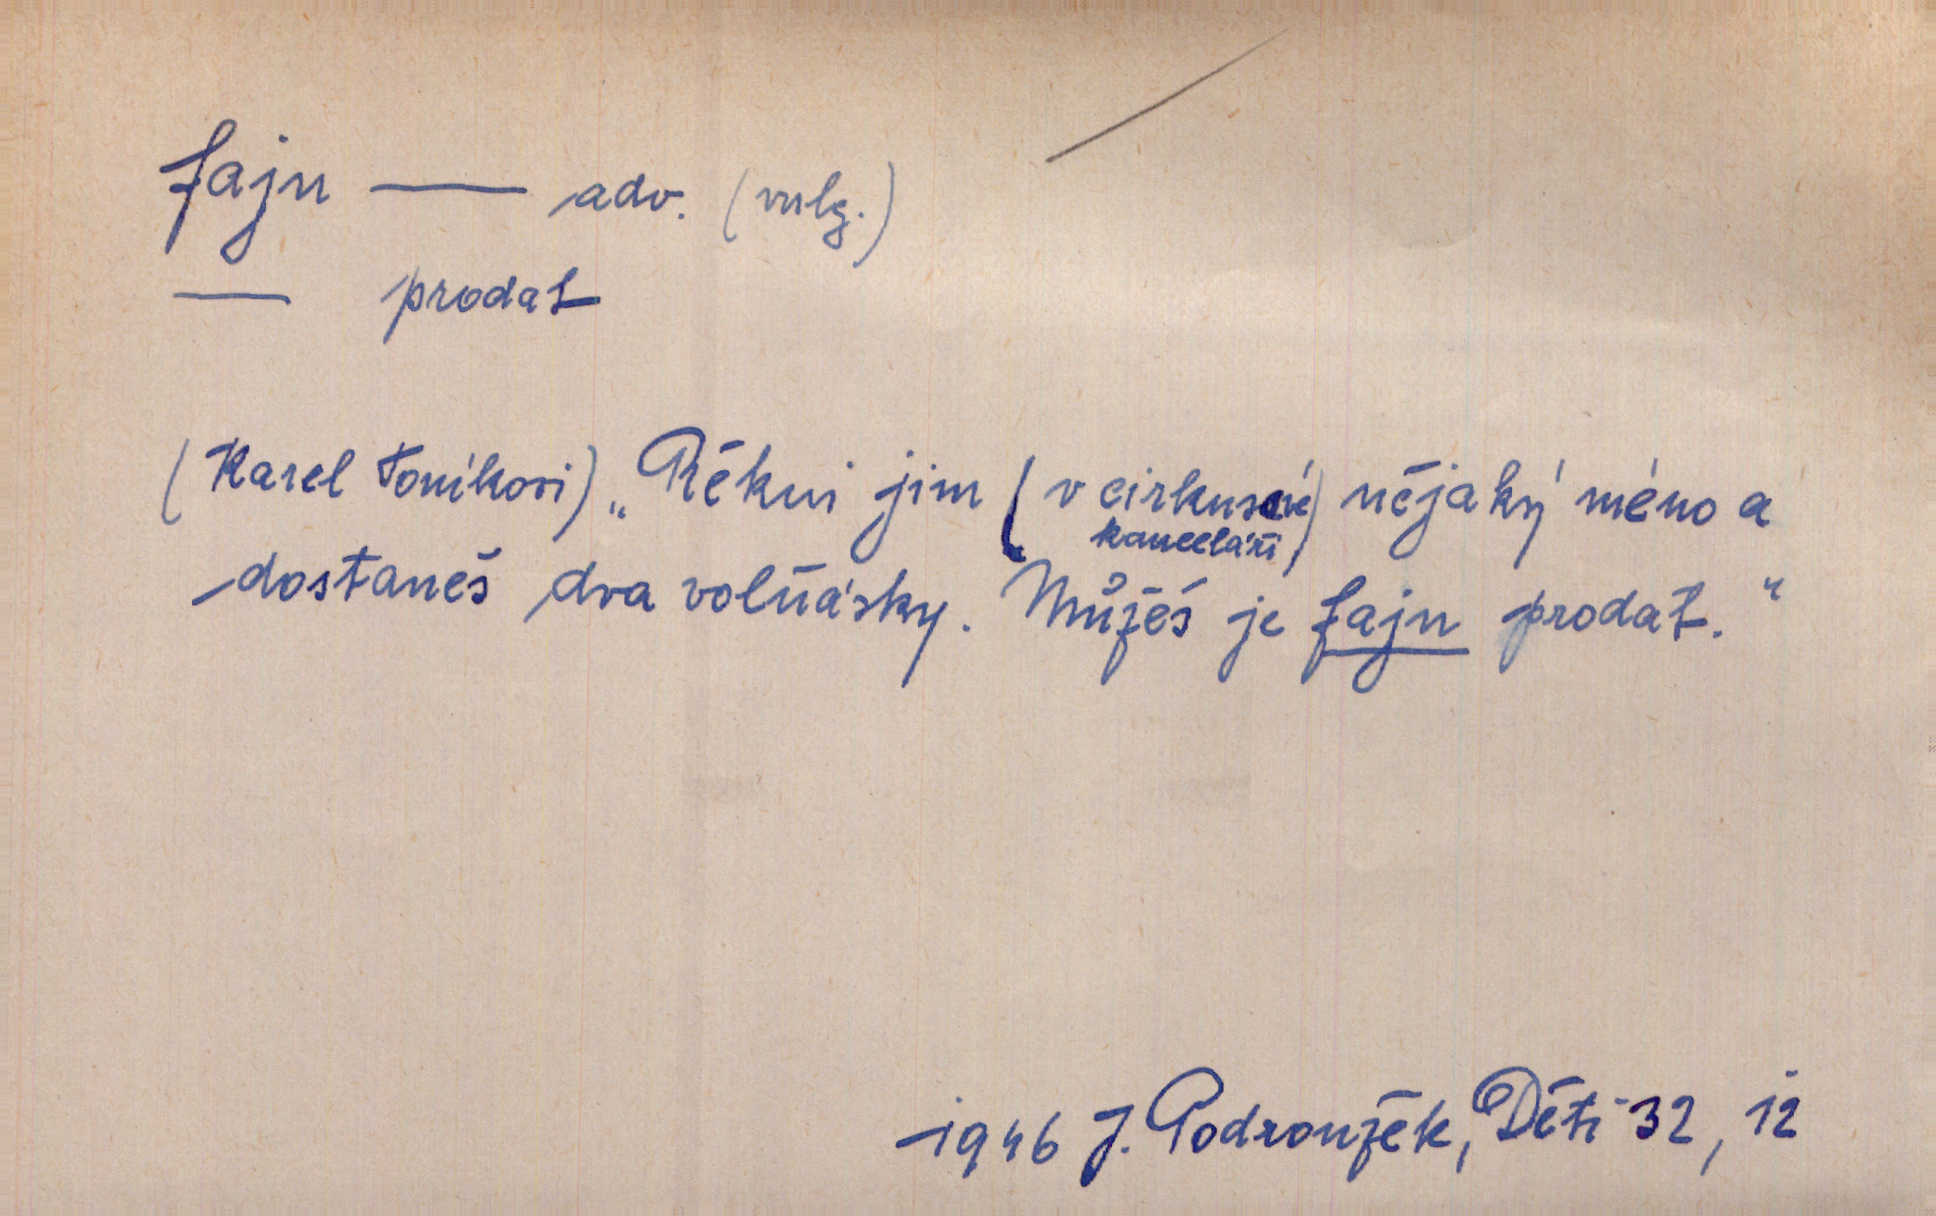 fajn — adv. (vulg.)
— prodat
(Karel Toníkovi) „Řekni jim (v cirkusové nějaký méno a
kanceláři)
dostaneš dva volňásky. Můžeš je fajn prodat."
1946 J. Podroužek, Děti 32, 12